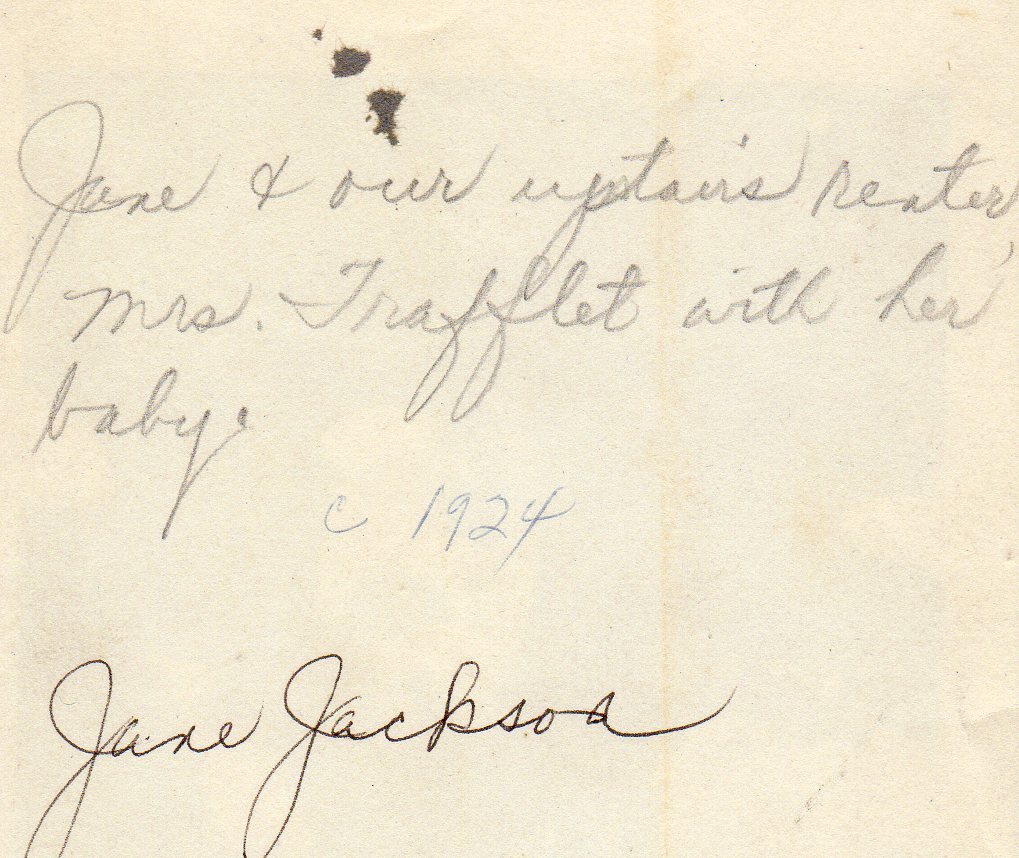 Jane & our upstairs renter,
Mrs. Trafflet with her
baby.
c 1924
Jane Jackson